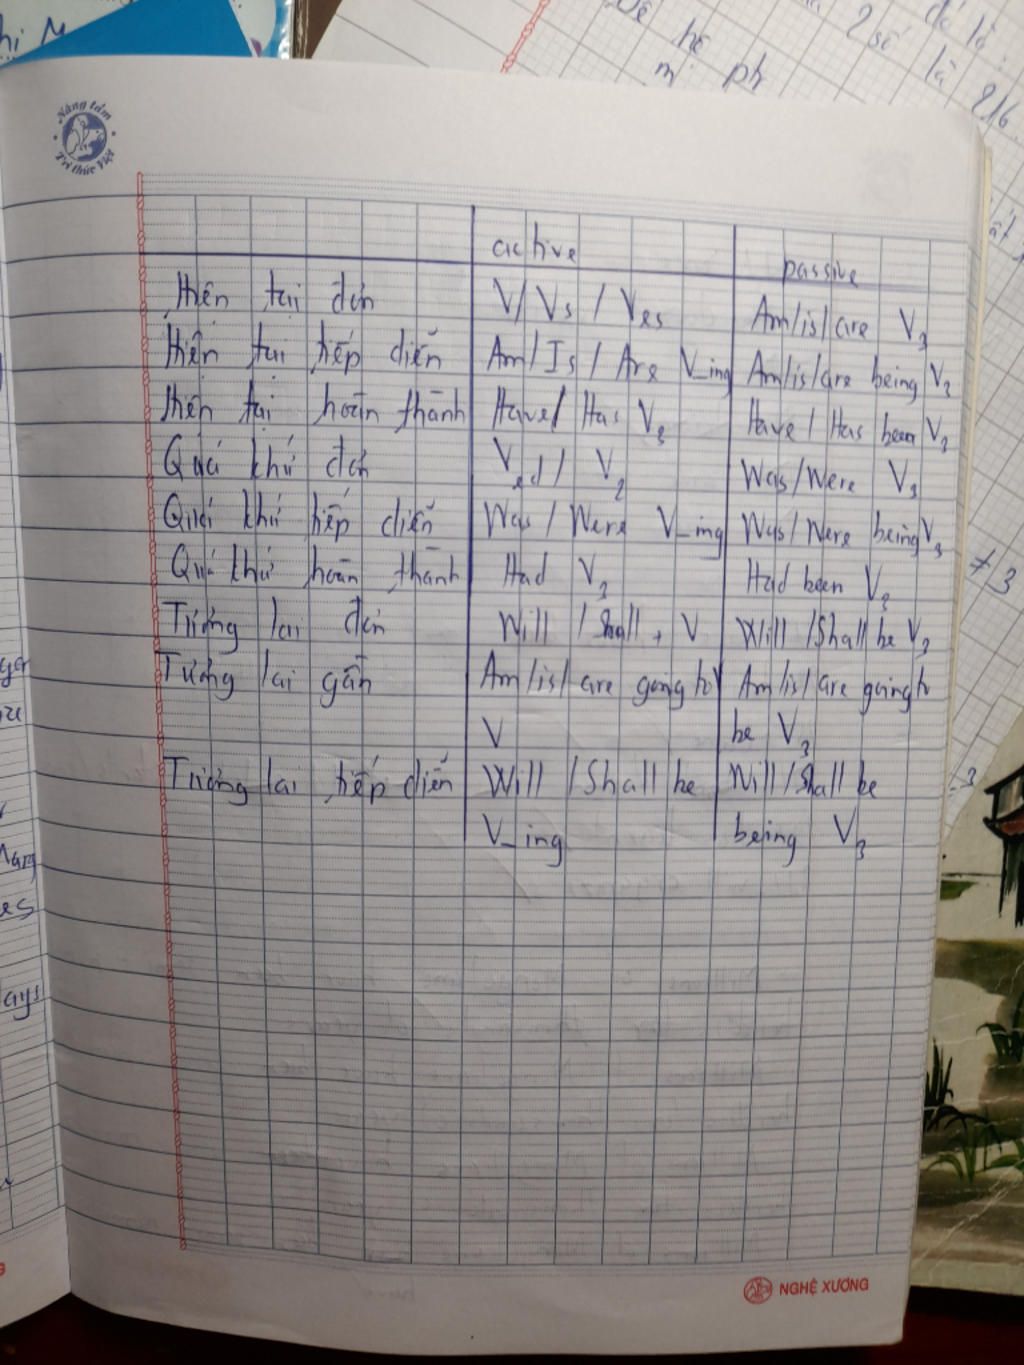 Nâng tầm
Trí thức Việt
active passive
Hiện tại đơn V/ Vs / Ves Am/is/are V3
Hiện tại tiếp diễn Am/ Is / Are V_ing Am/is/are being V3
Hiện tại hoàn thành Have/ Has V3 Have / Has been V3
Quá khứ đơn Ved/ V2 Was/Were V3
Quá khứ tiếp diễn Was / Were V_ing Was/Were being V3
Quá khứ hoàn thành Had V3 Had been V3
Tương lai đơn Will / Shall + V Will /Shall be V3
Tương lai gần Am/is/ are gong to Am/is/are going to
V be V3
Tương lai tiếp diễn Will /Shall be Will /Shall be
V_ing being V3
NGHỆ XƯƠNG
đó là:
2 số là 216.
hệ
ph
≠ 3
ays